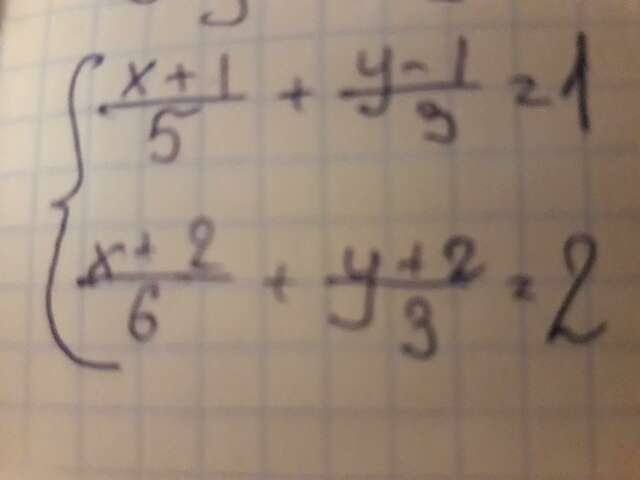 x+1/5 + y-1/3 = 1
x+2/6 + y+2/3 = 2